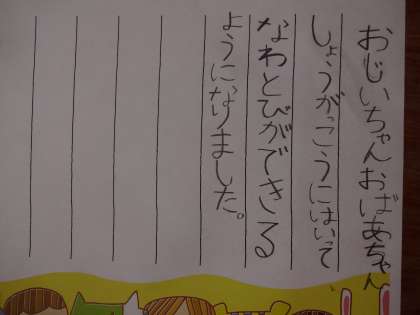 おじいちゃんおばあちゃん
しょうがっこうにはいって
なわとびができる
ようになりました。